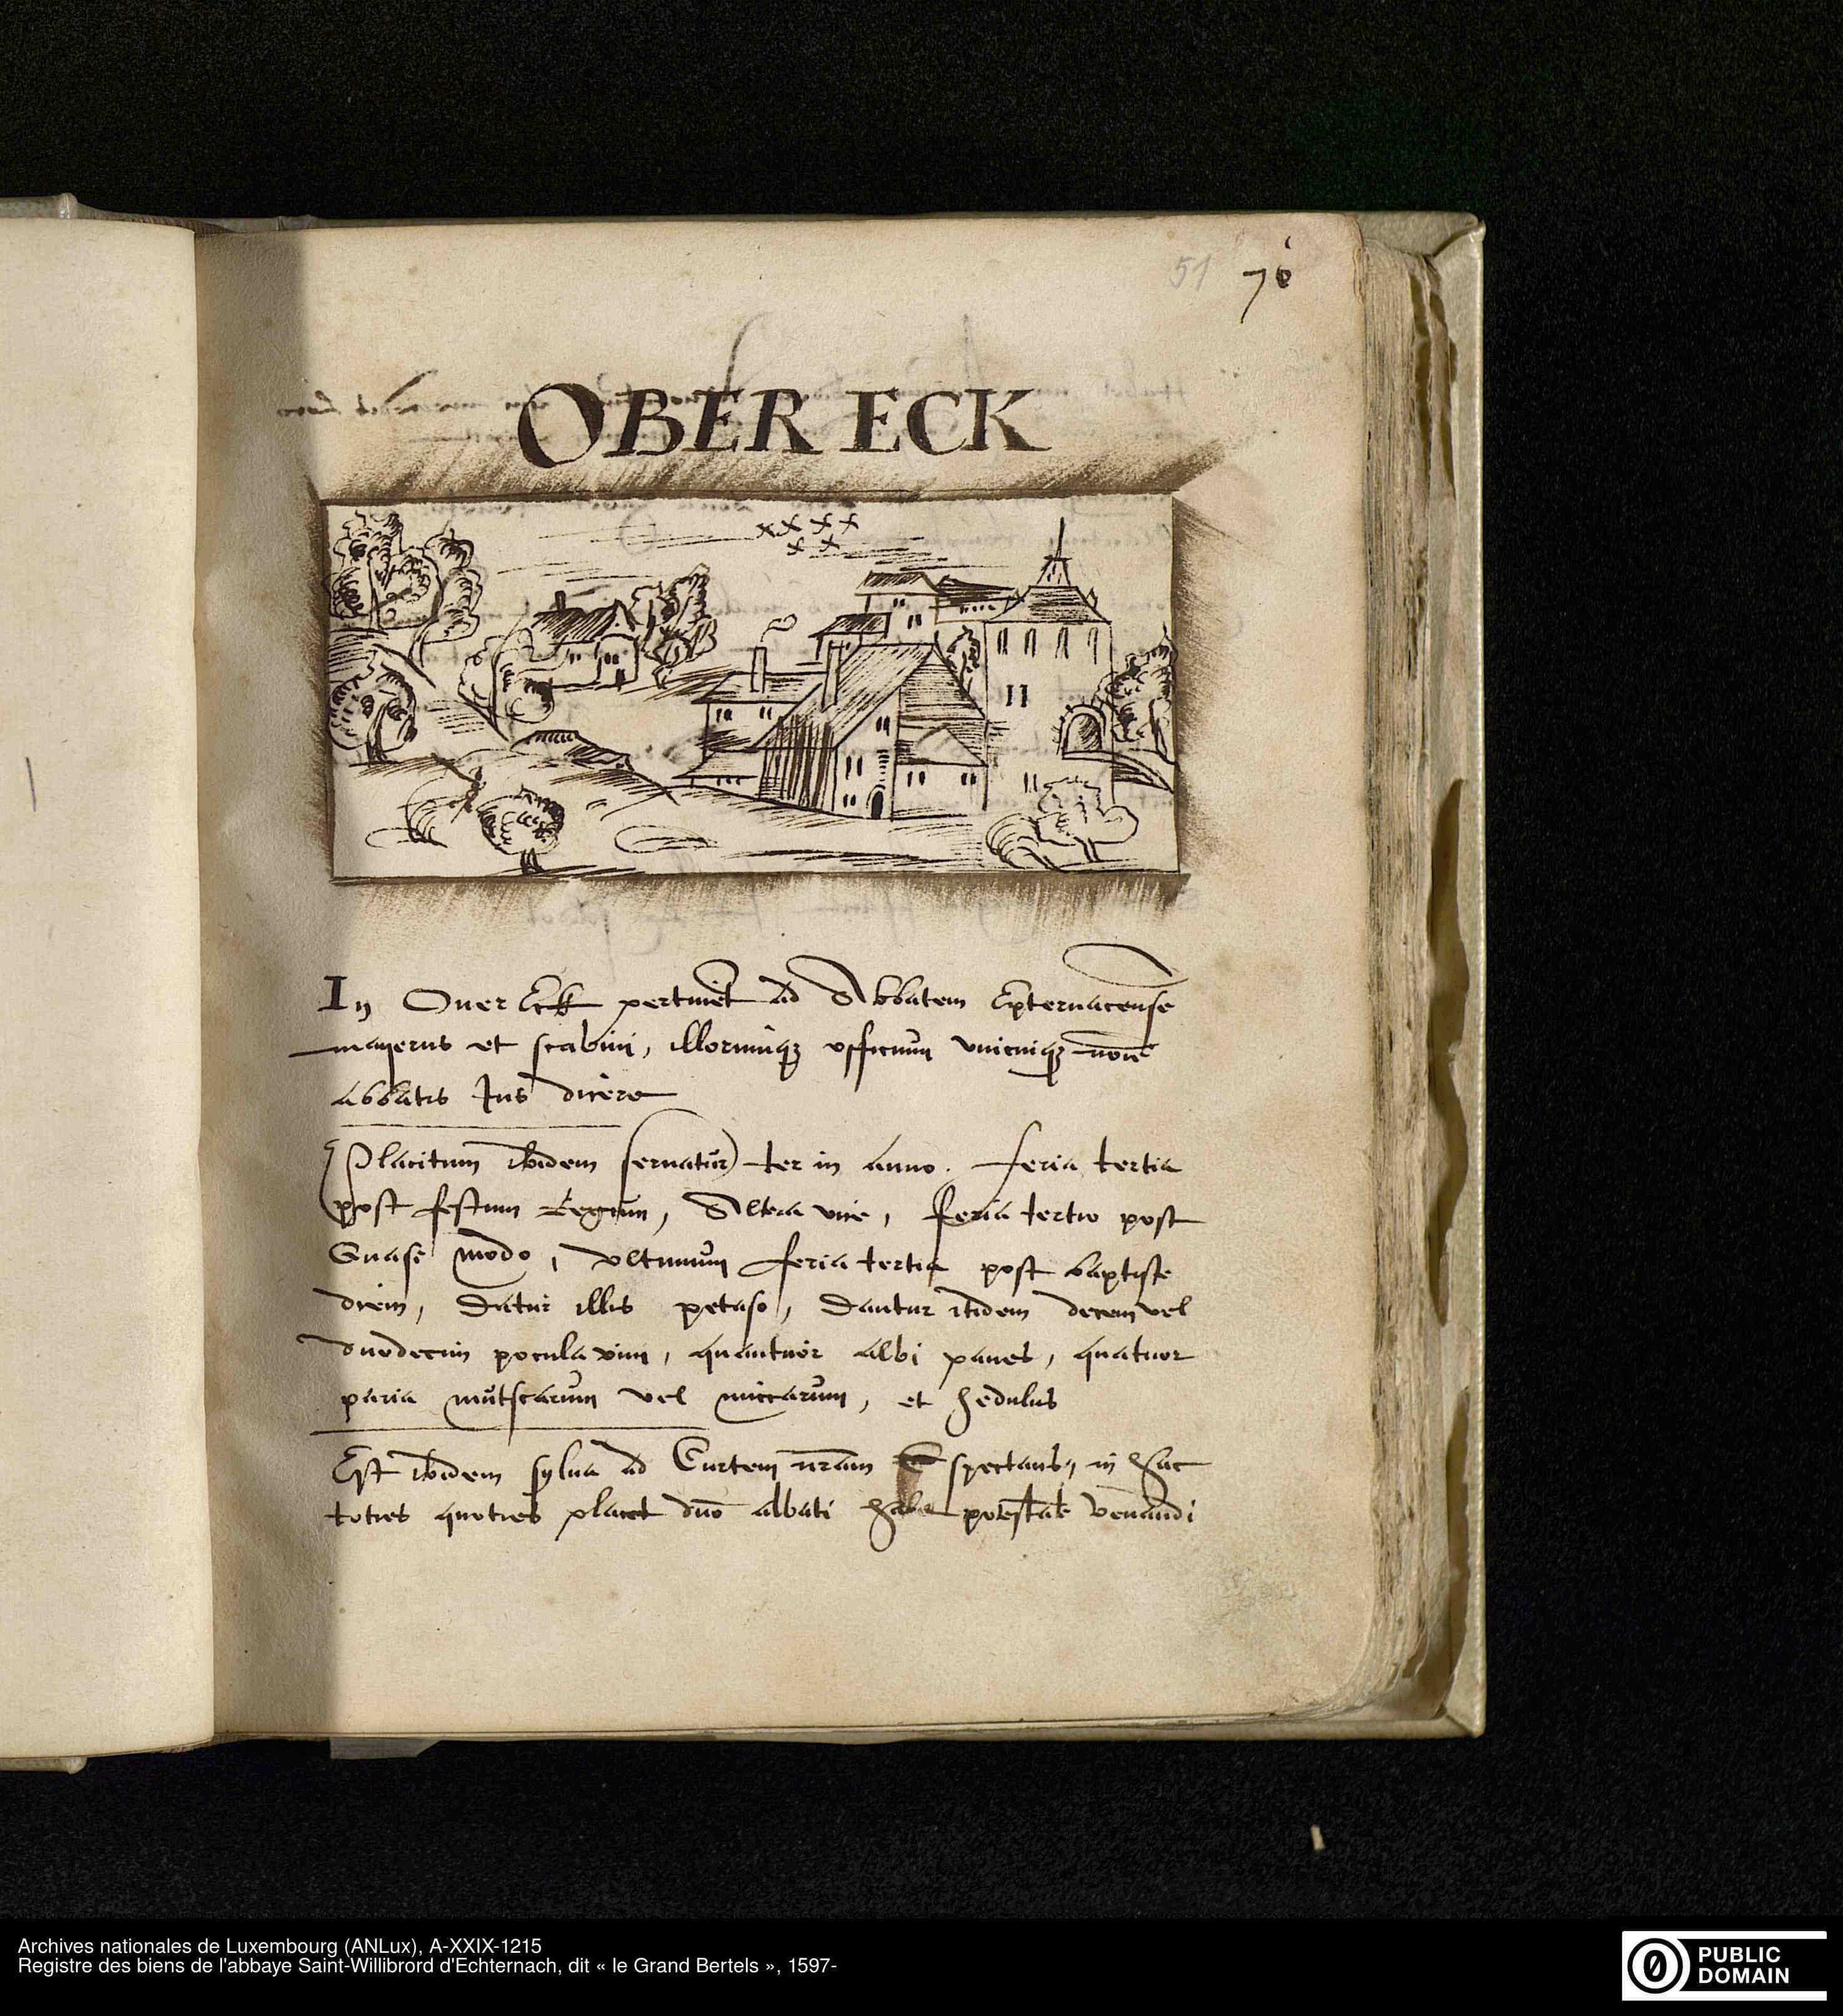 51 70
OBER ECK
In Ouer Eck pertinēt ad Abbatem Epternacense
mayerus et scabini, illorumq₃ officium vnicuiq₃ noīe
abbatis Ius dicere
Placitum ibidem seruatur ter in anno. feria tertia
post festum Regum, Altera vice, feria tertio post
Quasi modo, vltimum feria tertia post baptiste
diem, Datur illis petaso, Dantur itidem decem vel
duodecim pocula vini, quantuor albi panes, quatuor
paria mutscarum vel miccarum, et hedulus
Est ibidem sylua ad Curtem nr̄am spectans, in hac
toties quoties placet dn̄o abbati potestatē venandi
Archives nationales de Luxembourg (ANLux), A-XXIX-1215
Registre des biens de l'abbaye Saint-Willibrord d'Echternach, dit « le Grand Bertels », 1597-
PUBLIC
DOMAIN